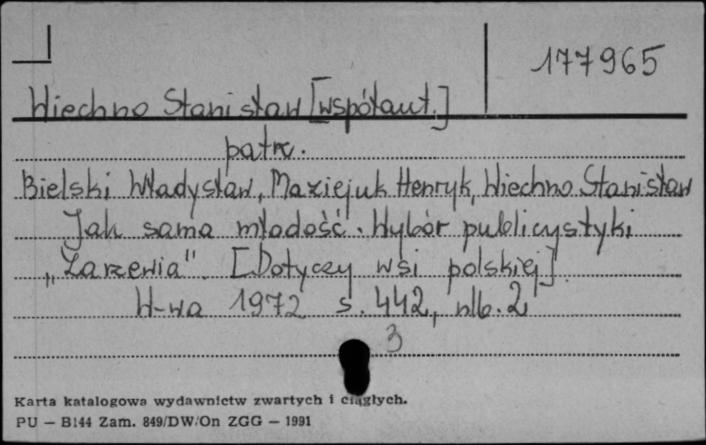 177965
Wiechno Stanisław [współaut.]
patrz.
Bielski Władysław, Maziejuk Henryk, Wiechno Stanisław
Jak sama młodość. Wybór publicystyki
„Zarzewia". [Dotyczy wsi polskiej].
W-wa 1972 s. 442, nlb. 2
3
Karta katalogowa wydawnictw zwartych i ciągłych.
PU — B144 Zam. 849/DW/On ZGG — 1991